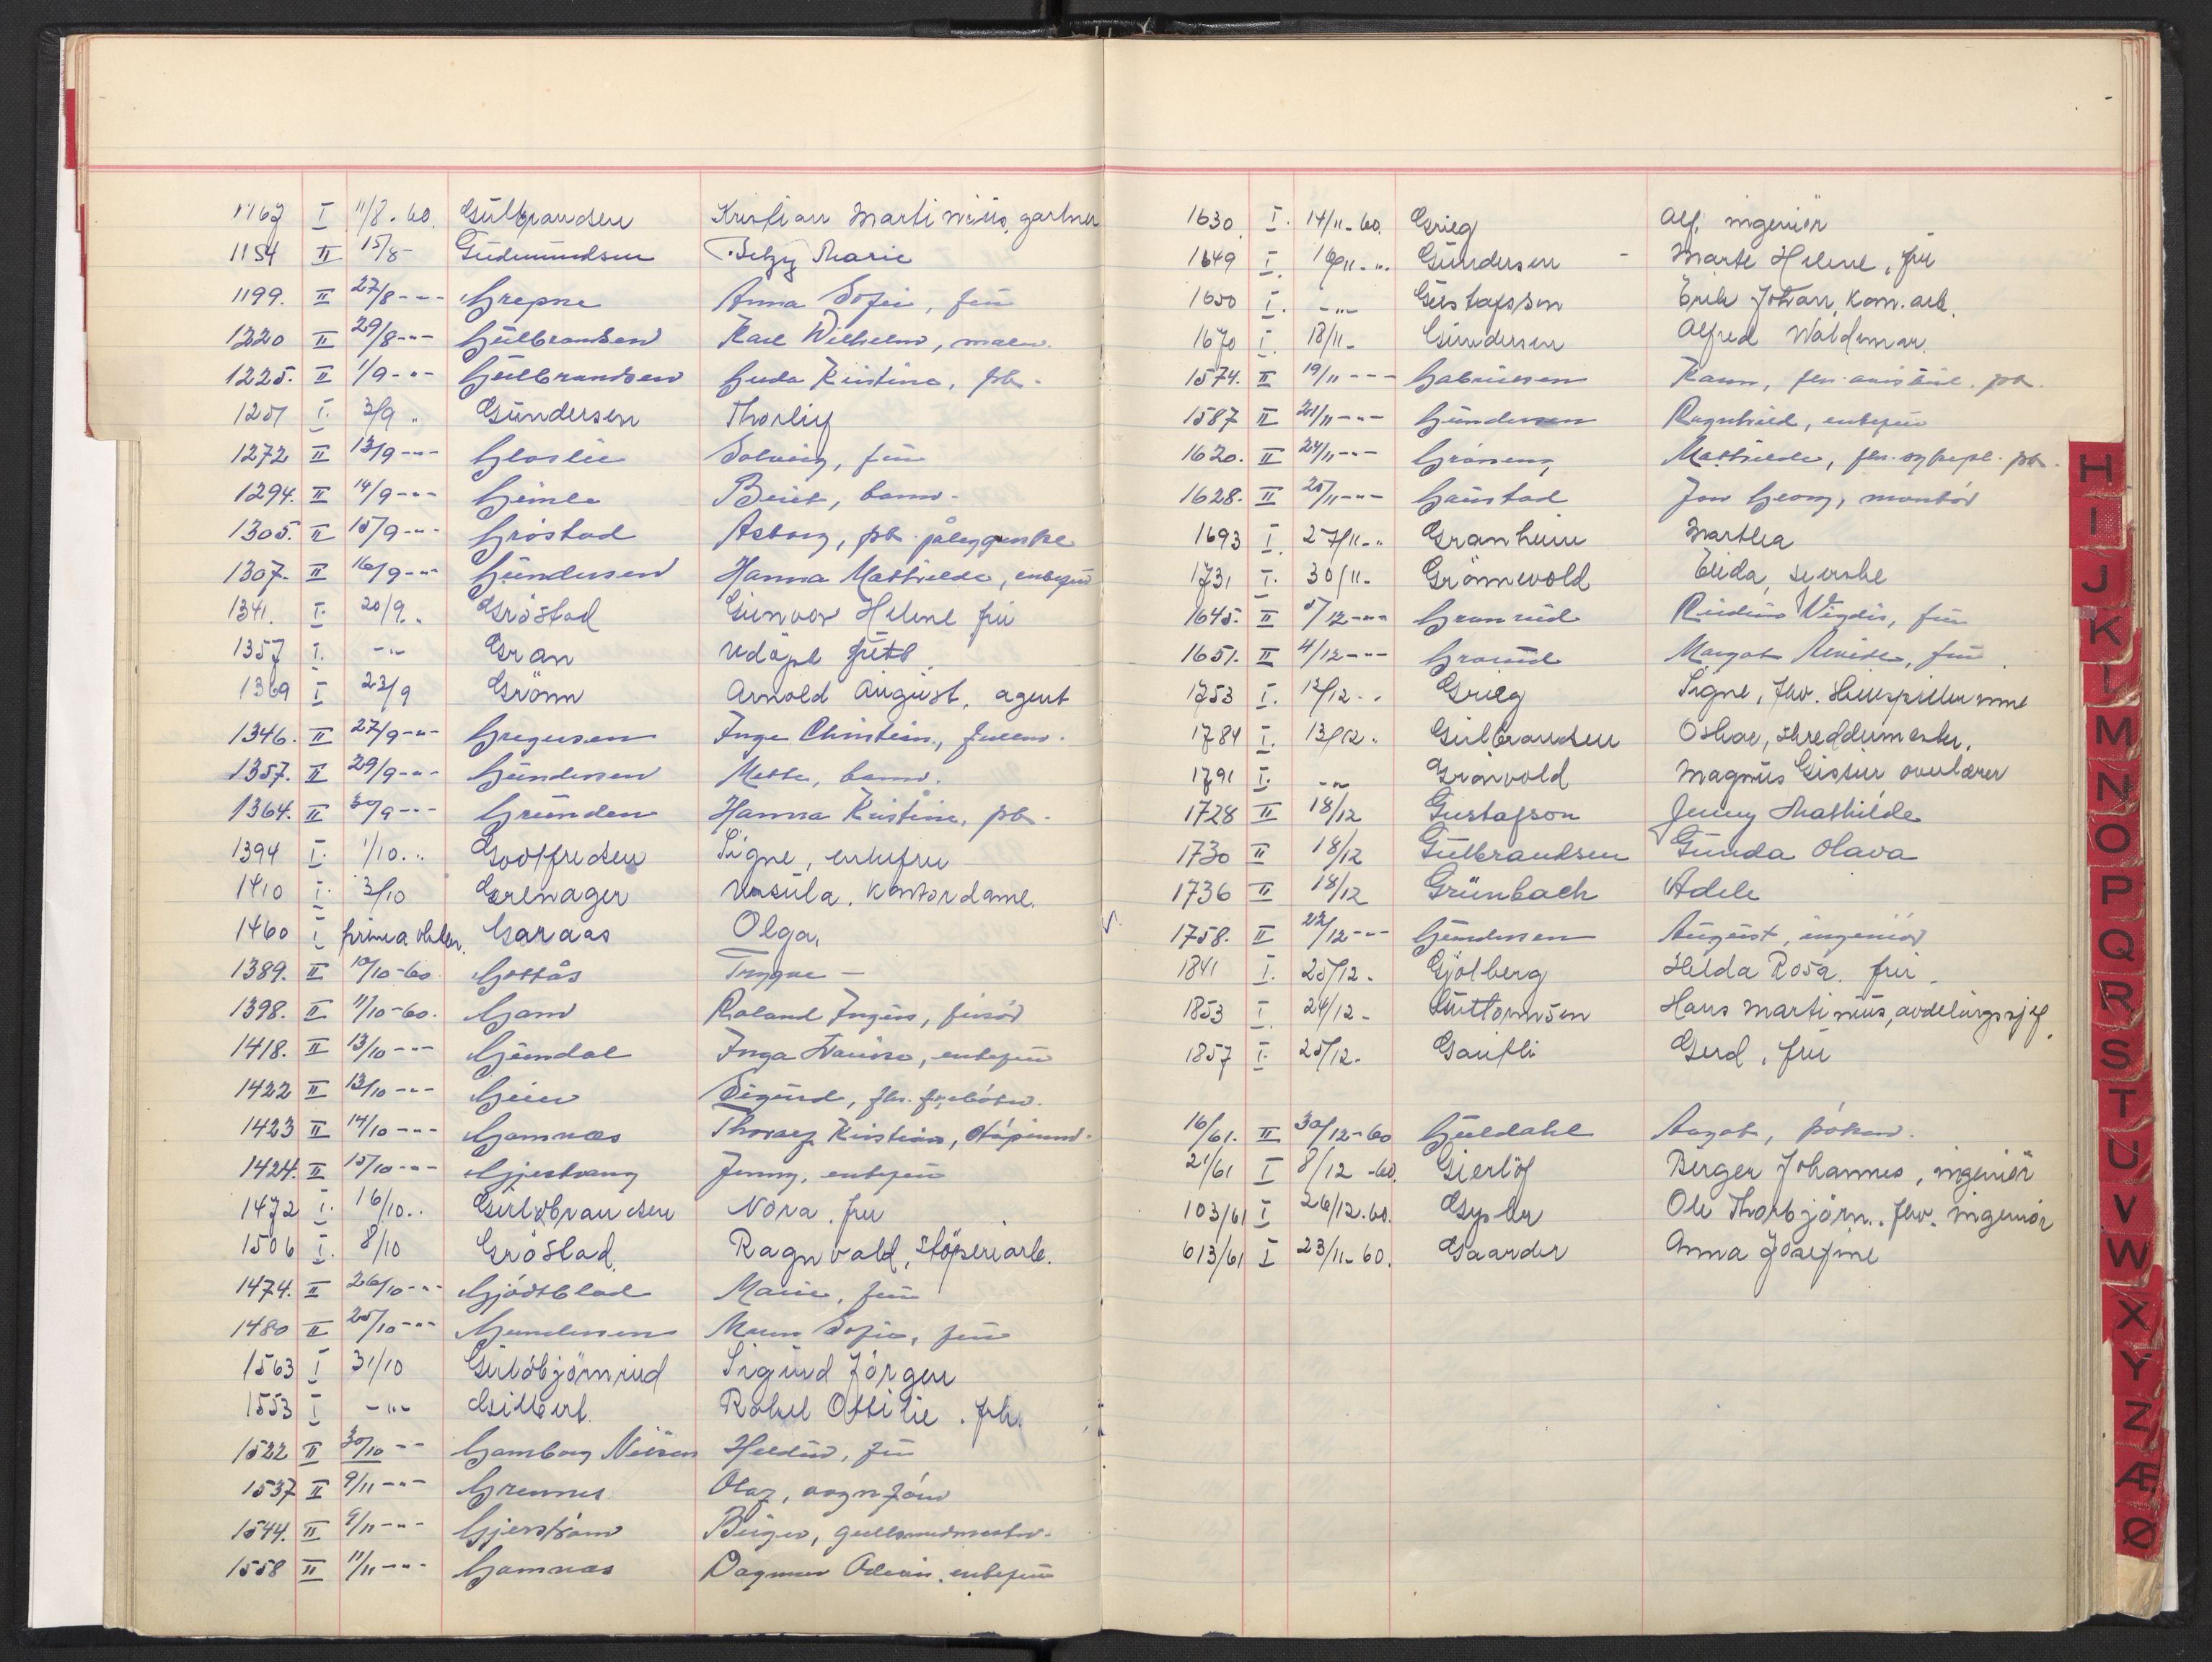 1167 I 11/8-60. Gulbrandsen Kristian Martinius, gartner
1154 II 15/8- Gudmundsen Betzy Marie
1199. II 27/8-"- Grepne Anna Sofie, fru
1220 II 29/8-"- Gulbrandsen Karl Wilhelm, maler.
1225. II 1/9-"- Gulbrandsen Guda Kristine, pb.
1251 I. 3/9 " Gundersen Thorleif
1272 II 13/9-"- Gloslie Solveig, fru
1294. II 14/9-"- Gimle Berit, barn.
1305. II 15/9-"- Gröstad Asborg, pb.
1307. II 16/9-"- Gundersen Hanna Mathilde, enkefru
1341. I. 20/9. " Gröstad Gunvor Helene fru
1357 I. -"- Gran Udöpt
1369 I 23/9 Grönn Arnold August, agent
1346. II 27/9-"- Gregersen Inge Christian,
1357. II 29/9-"- Gundersen Mette, barn.
1364. II 30/9-"- Grunden Hanna Kristine, pb.
1394 I. 1/10. " Godtfredsen Signe, enkefru
1410 I. 3/10 Grenager Ursula, kontordame.
1460 I prima okber. Garaas Olga,
1389. II 10/10-60 Gottås Trygve -
1398. II 11/10-60. Gam Roland Ingers, frisör
1418. II 13/10-"- Grindal Inga Lovise, enkefru
1422 II 13/10-"- Geier Sigurd, fhv.
1423 II 14/10-"- Gamnæs Thoralf Kristian,
1424. II 15/10-"- Gjestvang Jenny, enkefru
1472 I. 16/10. " Gulbrandsen Nora. fru
1506 I. 8/10 Gröstad. Ragnvald, støperiarb.
1474. II 26/10-"- Gjödtblad Marie, fru
1480 II 25/10-"- Gundersen Maren Sofie, fru
1563 I 31/10 Gulbjörnrud Sigurd Jörgen
1553 I -"- Gilbert. Rakel Ottilie. pb.
1522 II 30/10-"- Gamborg Nielsen Heldur, fru
1537 II 9/11-"- Grennes Olaf, vognfører
1544. II 9/11-"- Gjerström Birger, gullsmedmester.
1558 II 11/11-"- Gamnæs Dagmar enkefru
1630 I. 14/11-60. Grieg Alf, ingeniör
1649 I. 16/11-". Gundersen - Marte Helene, fru
1650 I. -"- Gustafsson Erik Johan, kom. arb.
1670 I. 18/11- Gundersen Alfred Waldemar.
1574. II 19/11-"- Gabrielsen Karen, fhv. pb.
1587 II 21/11-"- Gundersen Ragnhild, enkefru
1620. II 24/11-"- Gröneng Mathilde, fhv. sykepl. pb.
1628. II 25/11-"- Gaustad Jon Georg, montör
1693 I. 27/11-". Granheim Martha
1731 I. 30/11- Grönnvold Elida, syerske
1645. II 5/12-"- Granrud Vigdis, fru
1651. II 4/12-"- Grorud Margot Elvide, fru
1753 I. 12/12-. Grieg Signe, fhv. skuespillerinne
1784 I. 13/12. Gulbrandsen Oskar, skreddermester.
1791 I. -"- Grönvold Magnus Gissur overlærer
1728 II 18/12 Gustafson Jenny Mathilde
1730 II 18/12 Gulbrandsen Gunda Olava
1736 II 18/12 Grünbach Adele
1758. II 22/12-"- Gundersen August, ingeniör
1841 I. 25/12. Gjölberg Helda Rosa. fru.
1853 I. 24/12- Guttormsen Hans Martinius, avdelingssjef.
1857 I. 25/12. Gaustli Gerd, fru
16/61. II 30/12-60 Guldahl Aagot,
21/61 I 8/12-60. Gierlöf Birger Johannes, ingeniör
103/61 I 26/12.60. Gysler Ole Thorbjörn.. fhv. ingeniör
613/61 I 23/11-60. Gaarder Anna Josefine
H
I
J
K
L
M
N
O
P
Q
R
S
T
U
V
W
X
Y
Z
Æ
Ø